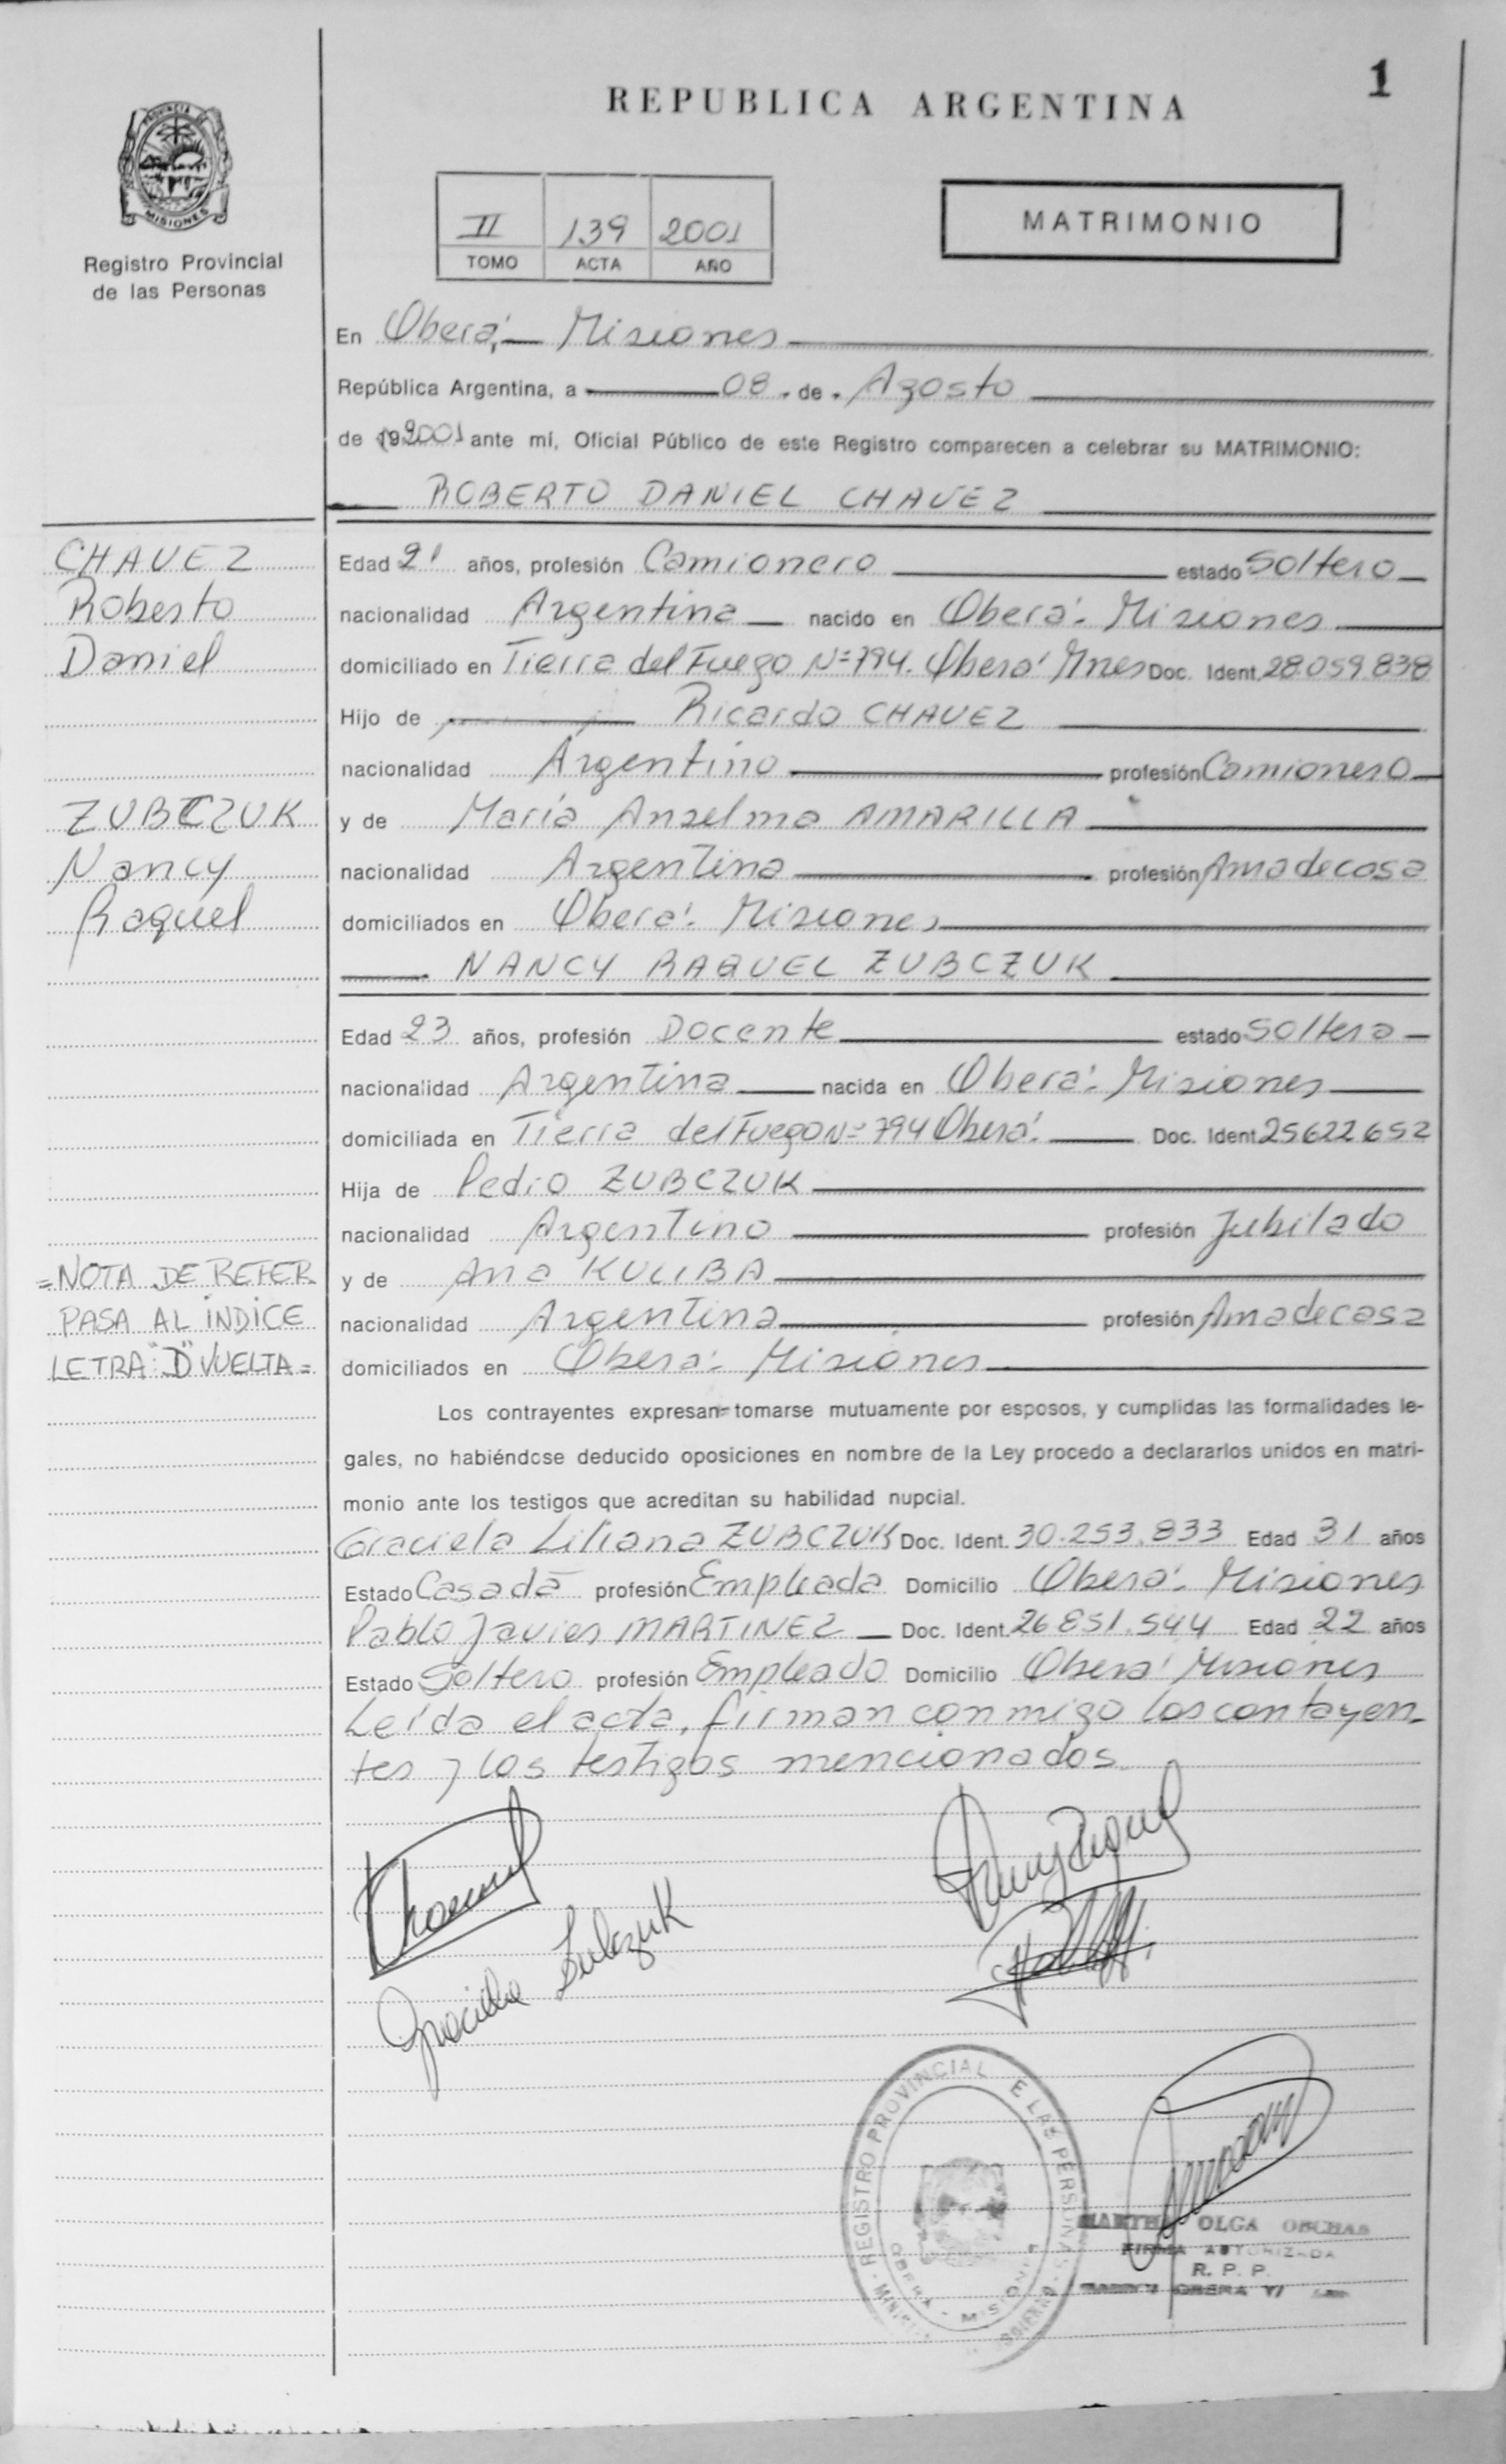 REPUBLICA ARGENTINA
1
PROVINCIA DE
MISIONES
Registro Provincial
de las Personas
II 139 2001
TOMO ACTA AÑO
MATRIMONIO
En Oberá, Misiones
República Argentina, a 08 de Agosto
de 192001 ante mí, Oficial Público de este Registro comparecen a celebrar su MATRIMONIO:
ROBERTO DANIEL CHAVEZ
CHAVEZ
Roberto
Daniel
Edad 21 años, profesión Camionero estado Soltero
nacionalidad Argentina nacido en Oberá - Misiones
domiciliado en Tierra del Fuego Nº 794. Oberá Mnes Doc. Ident. 28.059.838
Hijo de Ricardo CHAVEZ
nacionalidad Argentino profesión Camionero
ZUBCZUK
Nancy
Raquel
y de María Anselma AMARILLA
nacionalidad Argentina profesión Ama de casa
domiciliados en Oberá - Misiones
NANCY RAQUEL ZUBCZUK
Edad 23 años, profesión Docente estado Soltera
nacionalidad Argentina nacida en Oberá - Misiones
domiciliada en Tierra del Fuego Nº 794 Oberá - Doc. Ident. 25622652
Hija de Pedro ZUBCZUK
nacionalidad Argentino profesión Jubilado
=NOTA DE REFER
PASA AL INDICE
LETRA: "D" VUELTA=
y de Ana KULIBA
nacionalidad Argentina profesión Ama de casa
domiciliados en Oberá - Misiones
Los contrayentes expresan tomarse mutuamente por esposos, y cumplidas las formalidades le-
gales, no habiéndose deducido oposiciones en nombre de la Ley procedo a declararlos unidos en matri-
monio ante los testigos que acreditan su habilidad nupcial.
Graciela Liliana ZUBCZUK Doc. Ident. 30.253.833 Edad 31 años
Estado Casada profesión Empleada Domicilio Oberá - Misiones
Pablo Javier MARTINEZ Doc. Ident. 26851.544 Edad 22 años
Estado Soltero profesión Empleado Domicilio Oberá Misiones
Leída el acta, firman conmigo los contayen-
tes y los testigos mencionados.
Zubczuk
REGISTRO PROVINCIAL E LAS PERSONAS
OBERA - MISIONES
OLGA
FIRMA AUTORIZADA
R. P. P.
OBERA